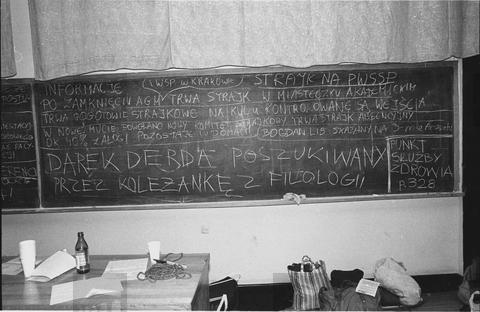 INFORMACJE (WSP W KRAKOWIE) STRAJK NA PWSSP
PO ZAMKNIĘCIU AGH TRWA STRAJK W MIASTECZKU AKADEMICKIM
TRWA GOTOWIE STRAJKOWE NA KULU KONTROLOWANE SĄ WEJŚCIA
W NOWEJ HUCIE POWOŁANO NOWY KOMITET STRAJKOWY TRWA STRAJK ABSENCYJNY
OK 40% ZAŁOGI POZOSTAJE W DOMACH BOGDAN LIS SKAZANY NA 3
DAREK DERDA POSZUKIWANY
PRZEZ KOLEŻANKĘ Z FILOLOGII
PUNKT
SŁUŻBY
ZDROWIA
p. 328